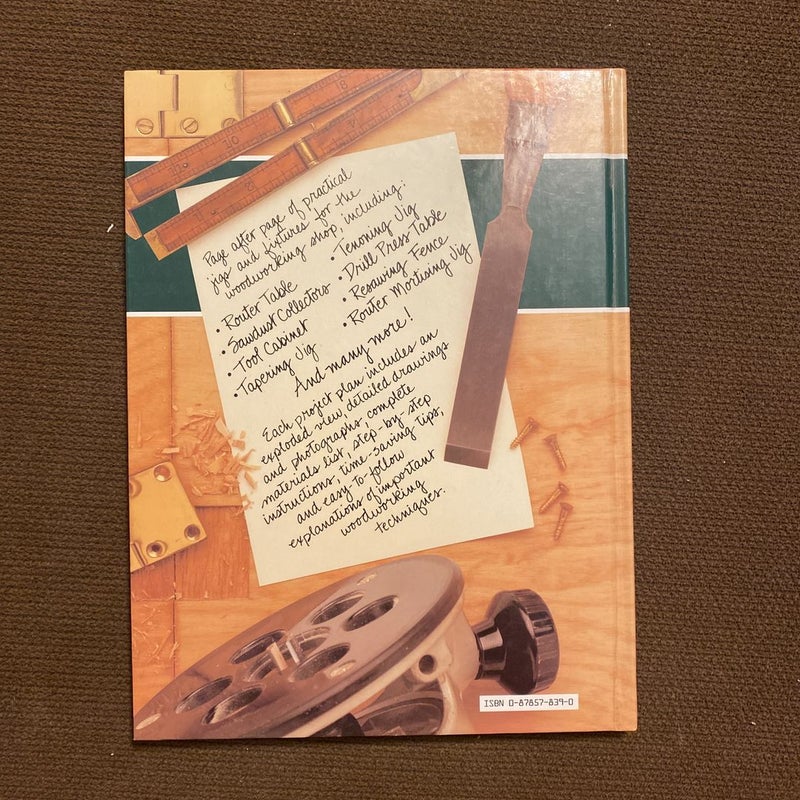 Page after page of practical
jigs and fixtures for the
woodworking shop, including:
• Router Table
• Sawdust Collectors
• Tool Cabinet
• Tapering Jig
• Tenoning Jig
• Drill Press Table
• Resawing Fence
• Router Mortising Jig
And many more!
Each project plan includes an
exploded view, detailed drawings
and photographs, complete
materials list, step-by-step
instructions, time-saving tips,
and easy-to-follow
explanations of important
woodworking
techniques.
ISBN 0-87857-839-0